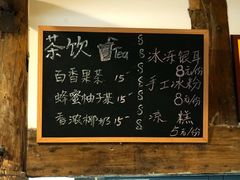 茶饮 Tea
百香果茶 15-
蜂蜜柚子茶 15-
香浓椰奶 15-
冰冻银耳
8元/份
手工冰粉
8元/份
凉糕
5元/份